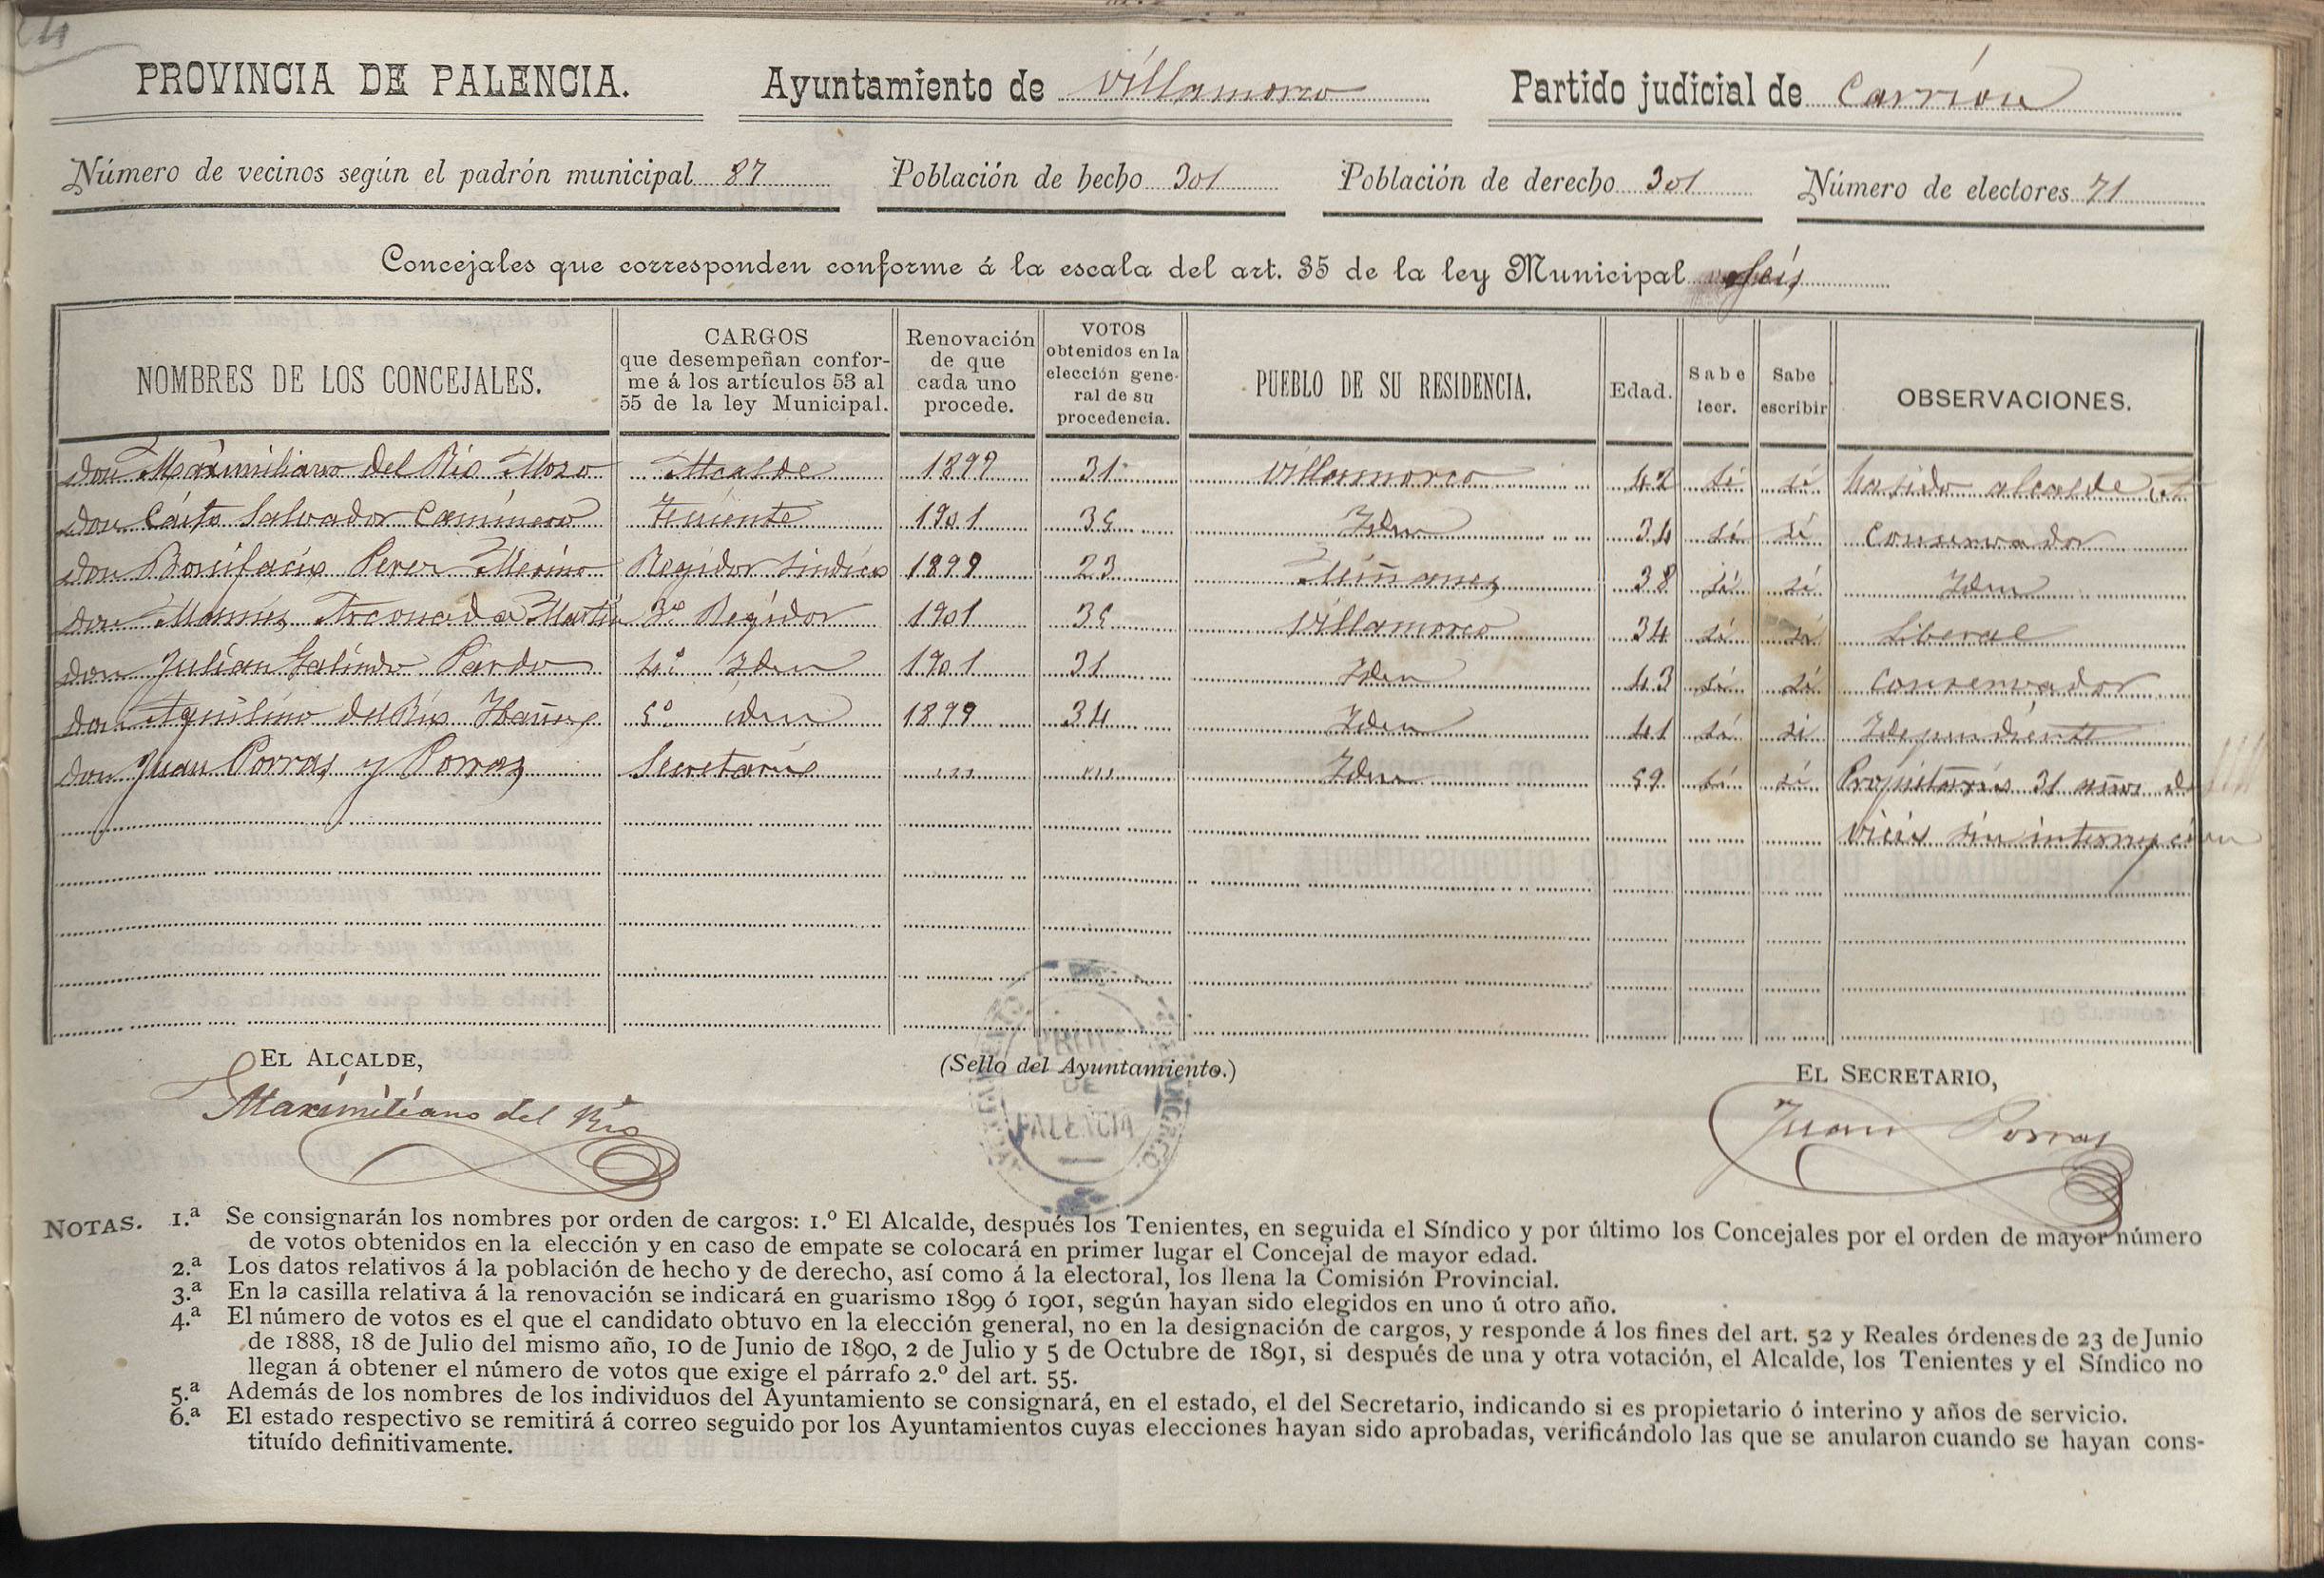 PROVINCIA DE PALENCIA. Ayuntamiento de Villamorco Partido judicial de Carrión
Número de vecinos según el padrón municipal 87 Población de hecho 301 Población de derecho 301 Número de electores 71
Concejales que corresponden conforme á la escala del art. 35 de la ley Municipal seis
NOMBRES DE LOS CONCEJALES. CARGOS que desempeñan confor-me á los artículos 53 al 55 de la ley Municipal. Renovación de que cada uno procede. VOTOS obtenidos en la elección gene-ral de su procedencia. PUEBLO DE SU RESIDENCIA. Edad. Sabe leer. Sabe escribir OBSERVACIONES.
don Maximiliano del Rio Mozo Alcalde 1899 31 Villamorco 42 si si ha sido alcalde
don Cásto Salvador Caminero Teniente 1901 35 Iden 34 si si Conservador
don Bonifacio Perez Merino Regidor Sindico 1899 23 Miñanes 38 si si Iden
don Mamés Arconada Martin 3º Regidor 1901 35 Villamorco 34 si si Liberal
don Julian Galindo Pardo 4º Iden 1901 31 Iden 43 si si Conservador
don Aquilino del Rio Ibañez 5º iden 1899 34 Iden 41 si si Idependiente
don Juan Porras y Porras Secretario Iden 59 si si Propietario 31 años de
vicio sin interrupcion
EL ALCALDE, (Sello del Ayuntamiento.) EL SECRETARIO,
Maximiliano del Rio Juan Porras
PROVª DE PALENCIA
NOTAS. 1.ª Se consignarán los nombres por orden de cargos: 1.º El Alcalde, después los Tenientes, en seguida el Síndico y por último los Concejales por el orden de mayor número
de votos obtenidos en la elección y en caso de empate se colocará en primer lugar el Concejal de mayor edad.
2.ª Los datos relativos á la población de hecho y de derecho, así como á la electoral, los llena la Comisión Provincial.
3.ª En la casilla relativa á la renovación se indicará en guarismo 1899 ó 1901, según hayan sido elegidos en uno ú otro año.
4.ª El número de votos es el que el candidato obtuvo en la elección general, no en la designación de cargos, y responde á los fines del art. 52 y Reales órdenes de 23 de Junio
de 1888, 18 de Julio del mismo año, 10 de Junio de 1890, 2 de Julio y 5 de Octubre de 1891, si después de una y otra votación, el Alcalde, los Tenientes y el Síndico no
llegan á obtener el número de votos que exige el párrafo 2.º del art. 55.
5.ª Además de los nombres de los individuos del Ayuntamiento se consignará, en el estado, el del Secretario, indicando si es propietario ó interino y años de servicio.
6.ª El estado respectivo se remitirá á correo seguido por los Ayuntamientos cuyas elecciones hayan sido aprobadas, verificándolo las que se anularon cuando se hayan cons-
tituído definitivamente.